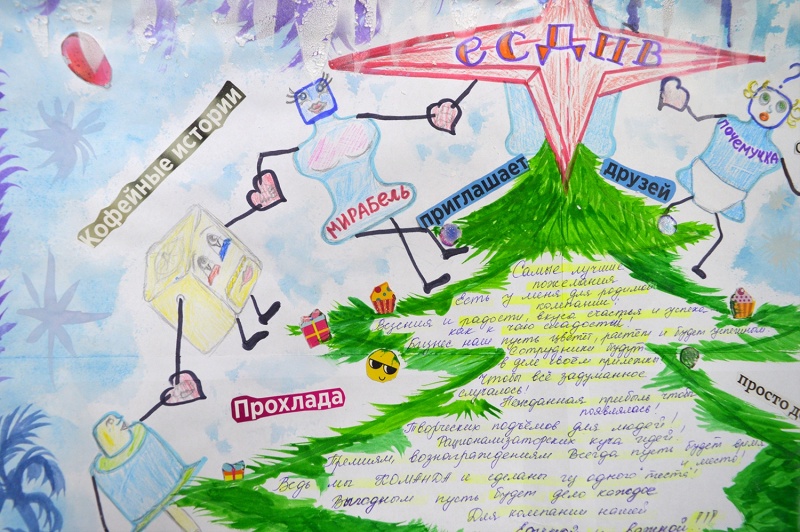 ЕСДПВ
Кофейные истории
почемучка
МИРАБЕЛЬ
приглашает
друзей
Самые лучшие
пожелания
Есть у меня для родимой
компании!
Везения и радости, вкуса счастья и успеха
как к чаю сладости!
Бизнес наш пусть цветёт, растёт и будет успешным
Сотрудники будут
в деле своём прилежны
Чтобы всё задуманное
случалось!
Нежданная прибыль чтоб
появлялась!
Прохлада
просто д
Творческих подъёмов для людей!
Рационализаторских куча идей!
Премиям, вознаграждениям всегда пусть будет время
и место!
Ведь мы КОМАНДА и сделаны из одного "теста"!
Выгодным пусть будет дело каждое
Для компании нашей